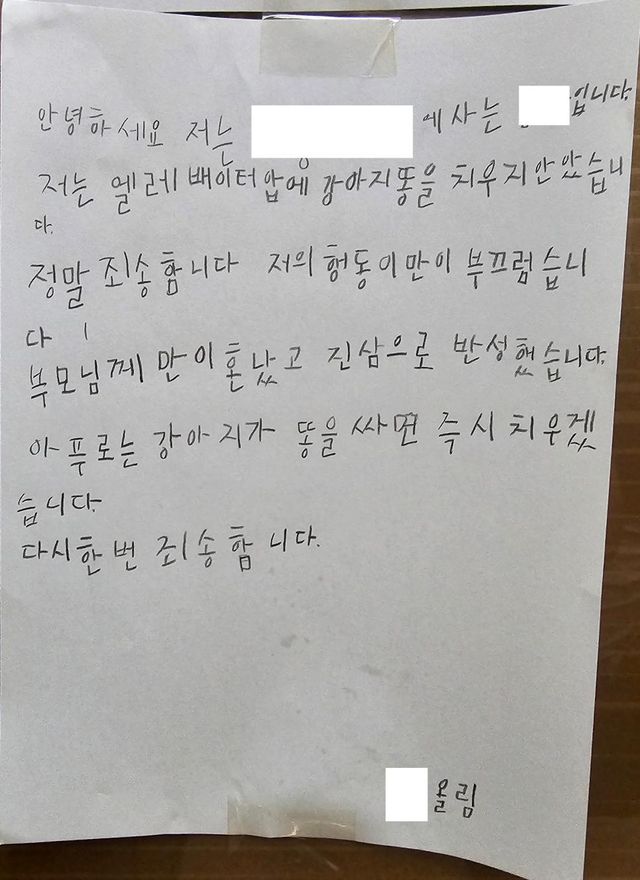 안녕하세요 저는 에사는 입니다.
저는 엘레배이터앞에 강아지똥을 치우지안았습니
다.
정말 죄송함니다 저의 헝동이만이 부끄럽습니
다
부모님께 만이혼났고 진삼으로 반성했습니다.
아푸로는 강아지가 똥을 싸면 즉시 치우겠
습니다.
다시한번 죄송함니다.
올림